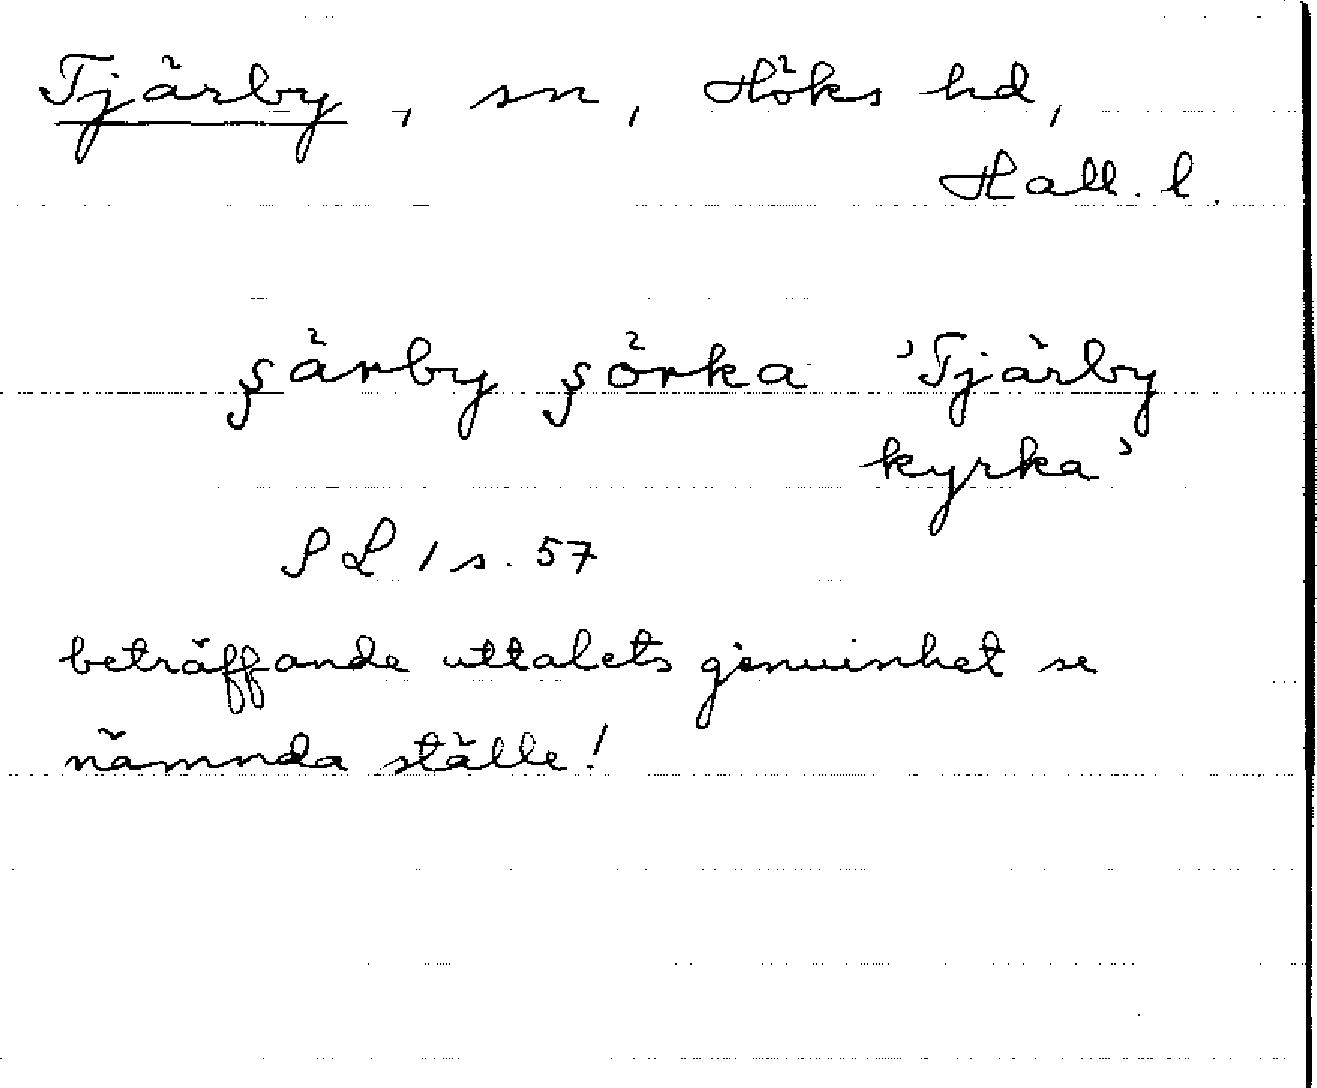 Tjärby, sn, Höks hd,
Hall. l.
şärby şörka 'Tjärby
kyrka'
SL 1 s. 57
beträffande uttalets genuinhet se
nämnda ställe!